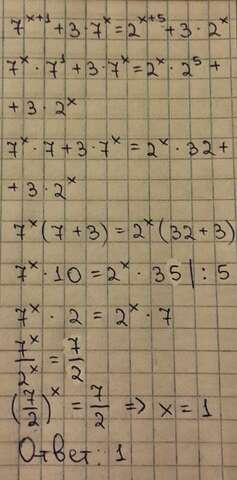 7^(x+1) + 3·7^x = 2^(x+5) + 3·2^x
7^x · 7^1 + 3·7^x = 2^x · 2^5 +
+ 3·2^x
7^x · 7 + 3·7^x = 2^x · 32 +
+ 3·2^x
7^x (7+3) = 2^x (32+3)
7^x · 10 = 2^x · 35 | : 5
7^x · 2 = 2^x · 7
7^x/2^x = 7/2
(7/2)^x = 7/2 => x = 1
Ответ: 1